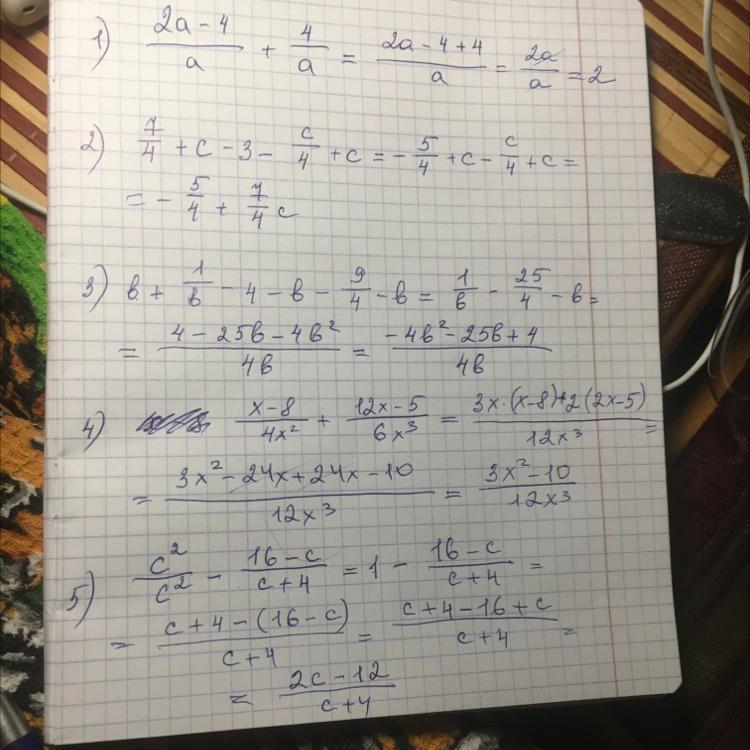 1) (2a - 4)/a + 4/a = (2a - 4 + 4)/a = 2a/a = 2
2) 7/4 + c - 3 - c/4 + c = - 5/4 + c - c/4 + c =
= - 5/4 + 7/4 c
3) b + 1/b - 4 - b - 9/4 - b = 1/b - 25/4 - b =
= (4 - 25b - 4b²)/4b = (-4b² - 25b + 4)/4b
4) (x - 8)/4x² + (12x - 5)/6x³ = (3x·(x-8)+2(2x-5))/12x³ =
= (3x² - 24x + 24x - 10)/12x³ = (3x² - 10)/12x³
5) c²/c² - (16 - c)/(c + 4) = 1 - (16 - c)/(c + 4) =
= (c + 4 - (16 - c))/(c + 4) = (c + 4 - 16 + c)/(c + 4) =
= (2c - 12)/(c + 4)